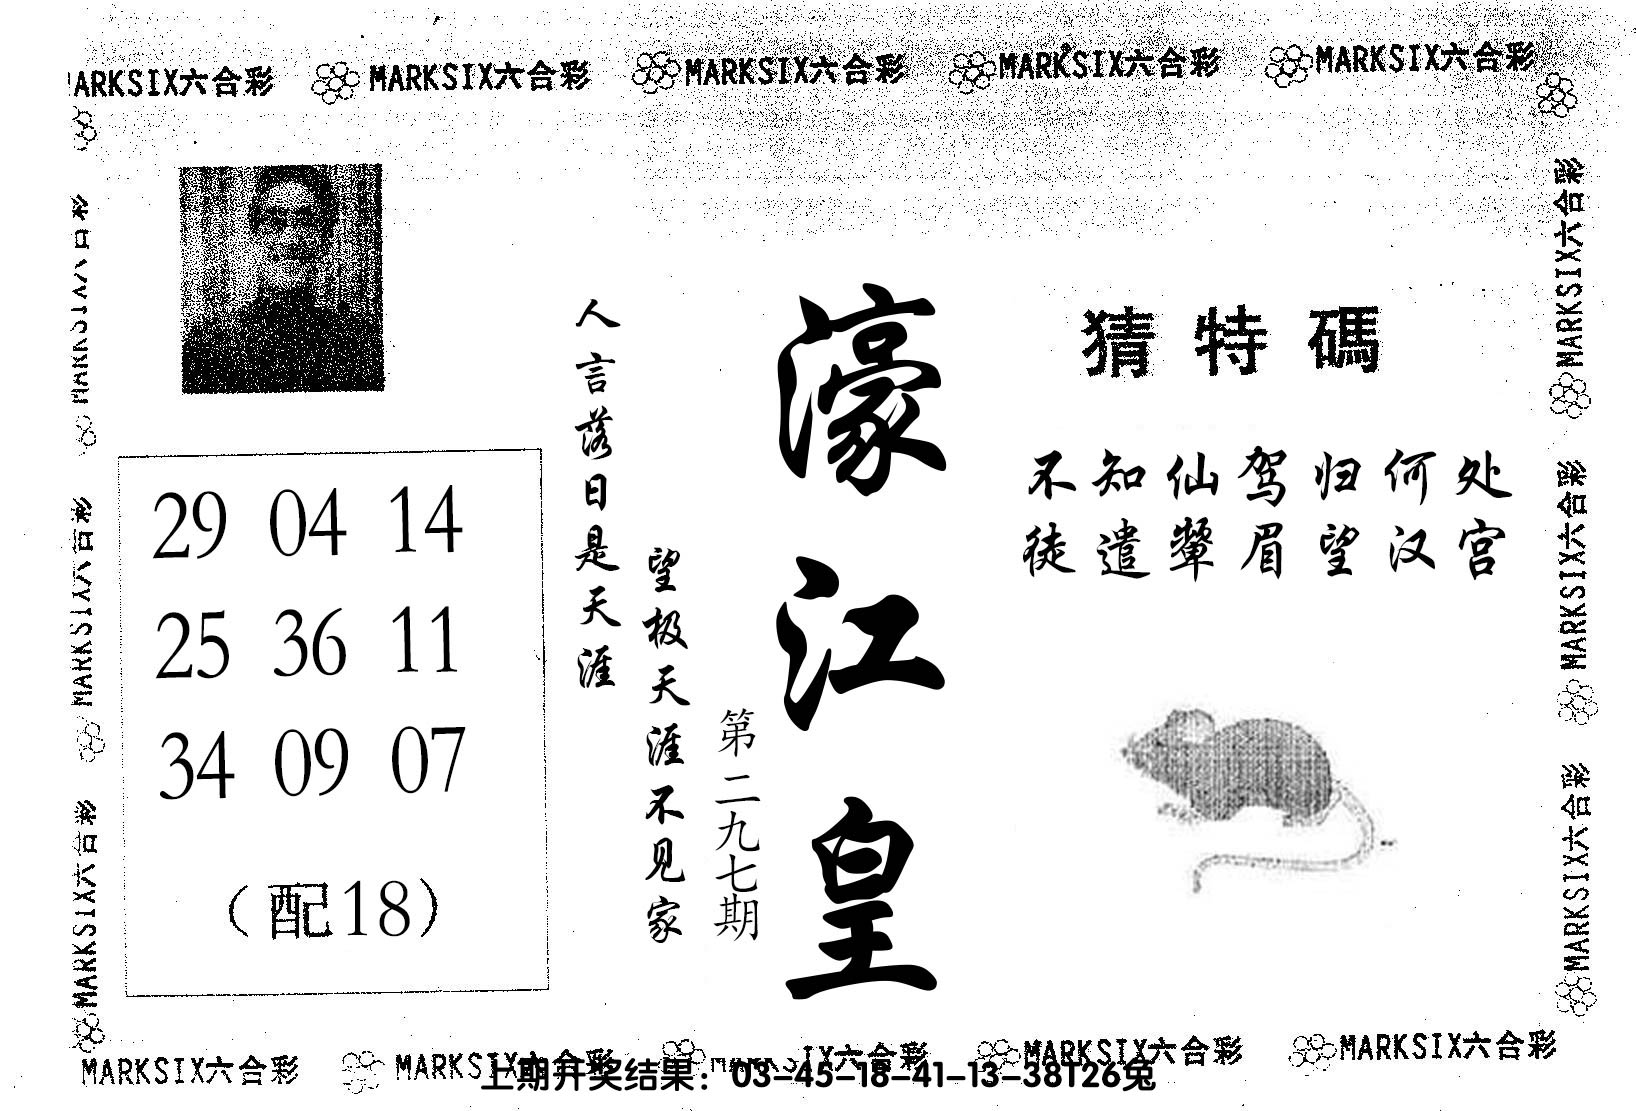 MARKSIX六合彩 MARKSIX六合彩 MARKSIX六合彩 MARKSIX六合彩 MARKSIX六合彩
猜特碼
不知仙驾归何处
徒遣颦眉望汉宫
濠江皇
第二九七期
人言落日是天涯
望极天涯不见家
29 04 14
25 36 11
34 09 07
(配18)
MARKSIX六合彩
MARKSIX六合彩
MARKSIX六合彩
MARKSIX六合彩
MARKSIX六合彩
MARKSIX六合彩
MARKSIX六合彩 MARKSIX六合彩 MARKSIX六合彩 MARKSIX六合彩
上期开奖结果：03-45-18-41-13-38T26兔